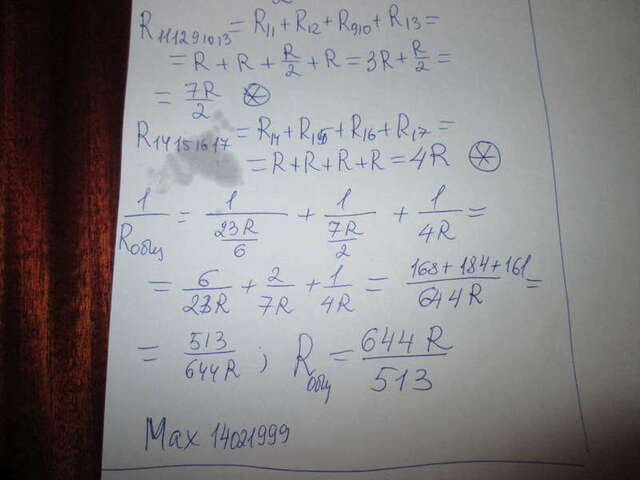 R₁₁₁₂₉₁₀₁₃ = R₁₁ + R₁₂ + R₉₁₀ + R₁₃ =
= R + R + R/2 + R = 3R + R/2 =
= 7R/2
R₁₄₁₅₁₆₁₇ = R₁₄ + R₁₅ + R₁₆ + R₁₇ =
= R + R + R + R = 4R
1/Rобщ = 1/(23R/6) + 1/(7R/2) + 1/4R =
= 6/23R + 2/7R + 1/4R = (168 + 184 + 161)/644R =
= 513/644R ; Rобщ = 644R/513
Max 14021999